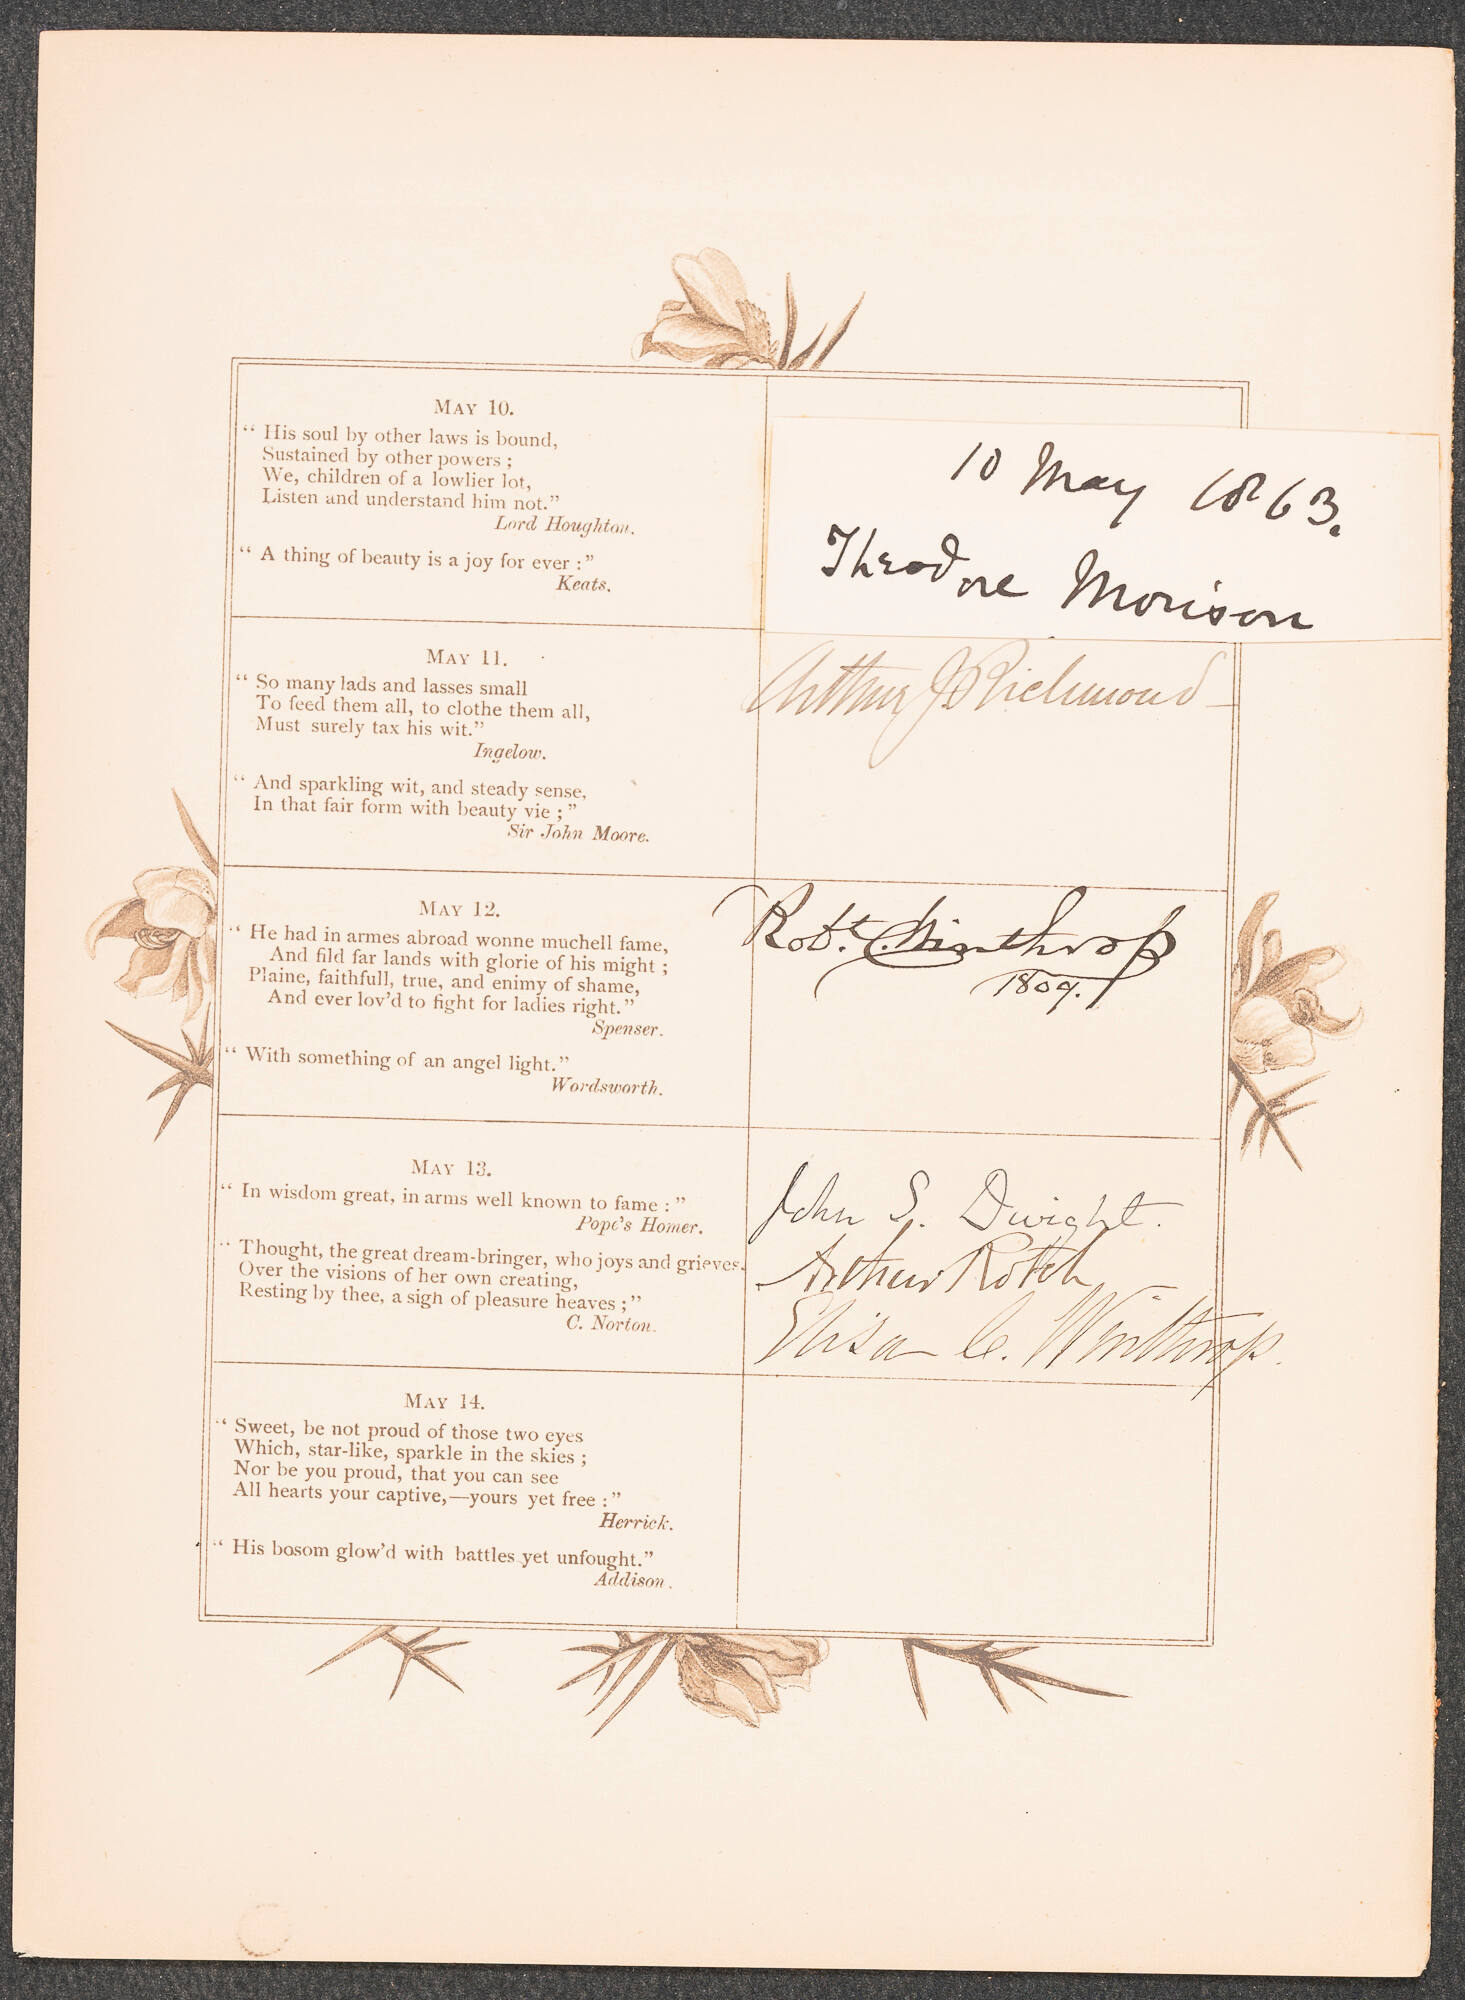 MAY 10.
“ His soul by other laws is bound,
Sustained by other powers ;
We, children of a lowlier lot,
Listen and understand him not.”
Lord Houghton.
“ A thing of beauty is a joy for ever : ”
Keats.
10 May 1863.
Theodore Morison
MAY 11.
“ So many lads and lasses small
To feed them all, to clothe them all,
Must surely tax his wit.”
Ingelow.
“ And sparkling wit, and steady sense,
In that fair form with beauty vie ; ”
Sir John Moore.
Arthur J Richmond
MAY 12.
“ He had in armes abroad wonne muchell fame,
And fild far lands with glorie of his might ;
Plaine, faithfull, true, and enimy of shame,
And ever lov’d to fight for ladies right.”
Spenser.
“ With something of an angel light.”
Wordsworth.
Robt. C. Winthrop
1809.
MAY 13.
“ In wisdom great, in arms well known to fame : ”
Pope’s Homer.
“ Thought, the great dream-bringer, who joys and grieves.
Over the visions of her own creating,
Resting by thee, a sigh of pleasure heaves ; ”
C. Norton.
John S. Dwight.
Arthur Rotch
Elisa C. Winthrop.
MAY 14.
“ Sweet, be not proud of those two eyes
Which, star-like, sparkle in the skies ;
Nor be you proud, that you can see
All hearts your captive,—yours yet free : ”
Herrick.
“ His bosom glow’d with battles yet unfought.”
Addison.